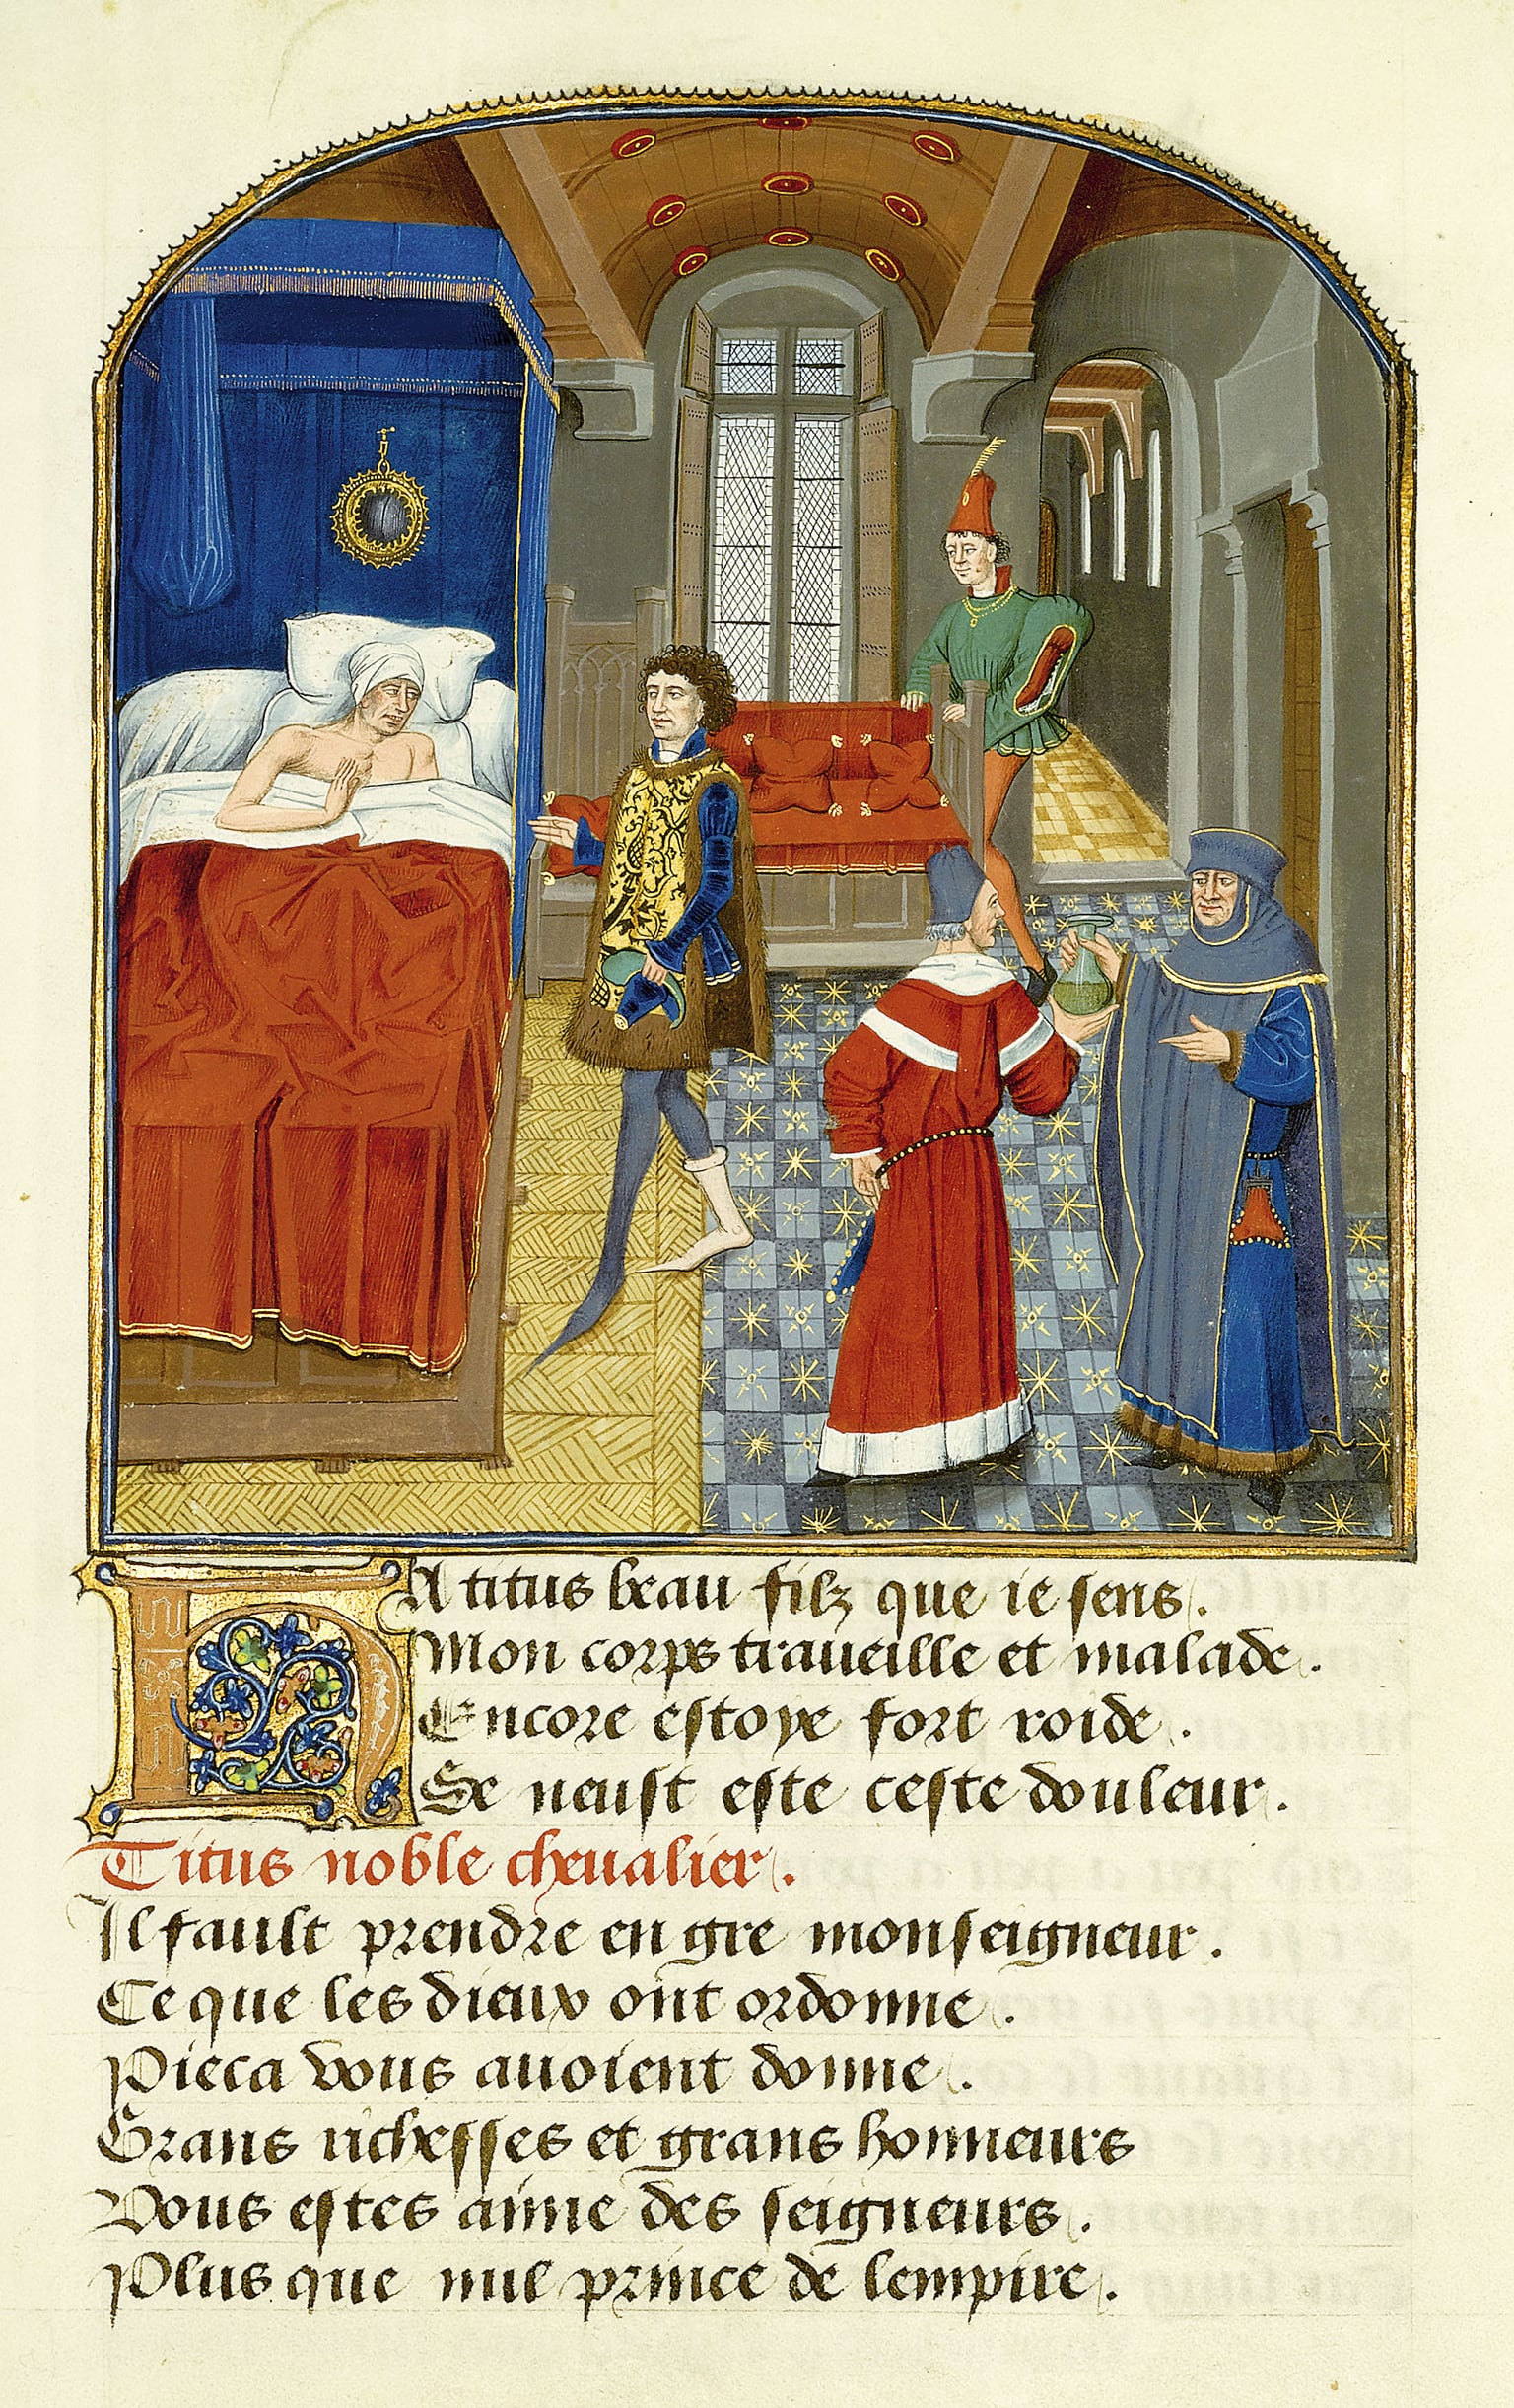 HA titus beau filz que ie sens.
Mon corps traueille et malade.
Encore estoye fort roide.
Se neust este ceste douleur.
Titus noble cheualier.
Il fault prendre en gre monseigneur.
Ce que les dieux ont ordonne.
Pieca vous auoient donne.
Grans richesses et grans honneurs
Vous estes aime des seigneurs.
Plus que nul prince de lempire.